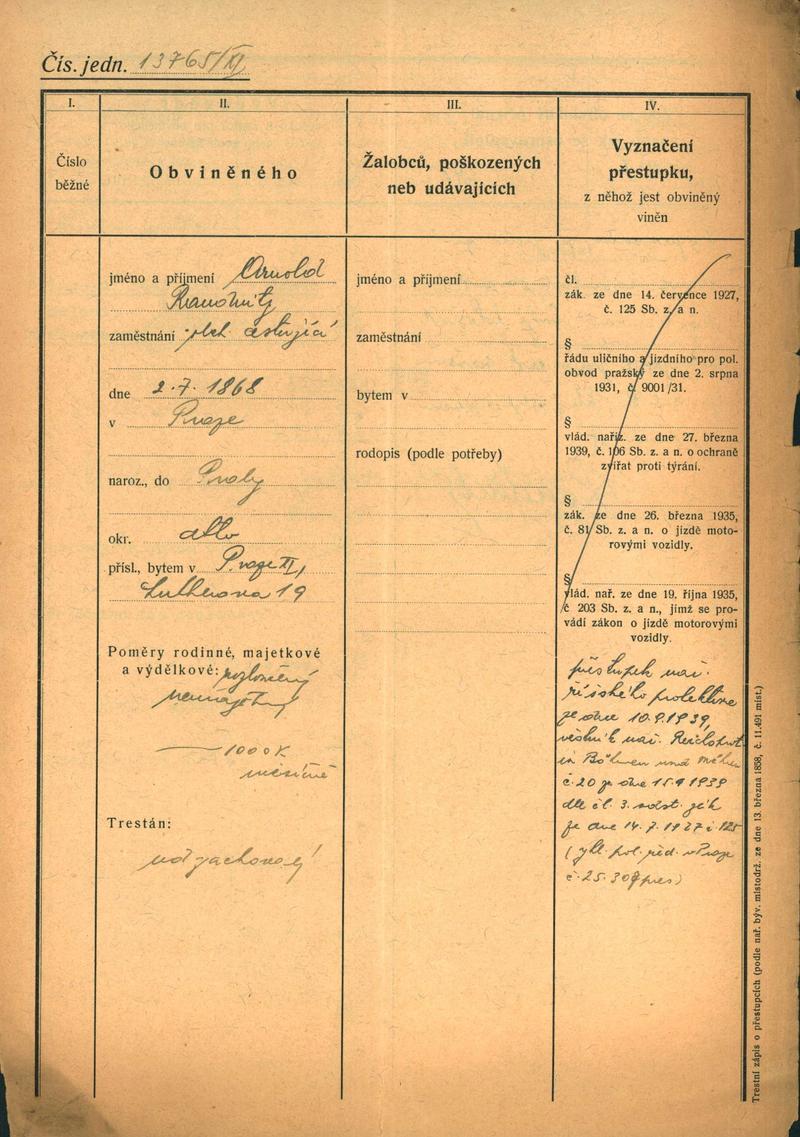 Čís. jedn. 13765/XI
I.
II.
III.
IV.
Číslo
běžné
Obviněného
Žalobců, poškozených
neb udávajících
Vyznačení
přestupku,
z něhož jest obviněný
viněn
jméno a příjmení Arnold
Raudnitz
zaměstnání obch. cestující
dne 2.7. 1868
v Praze
naroz., do Prahy
okr. dtto
přísl., bytem v Praze XII,
Lutherova 19
Poměry rodinné, majetkové
a výdělkové: rozloučený
nemajetný
1000 K
měsíčně
Trestán:
zachovalý
jméno a příjmení
zaměstnání
bytem v
rodopis (podle potřeby)
čl.
zák. ze dne 14. července 1927,
č. 125 Sb. z. a n.
§
řádu uličního a jízdního pro pol.
obvod pražský ze dne 2. srpna
1931, č. 9001/31.
§
vlád. naříz. ze dne 27. března
1939, č. 106 Sb. z. a n. o ochraně
zvířat proti týrání.
§
zák. ze dne 26. března 1935,
č. 81 Sb. z. a n. o jízdě moto-
rovými vozidly.
§
vlád. nař. ze dne 19. října 1935,
č 203 Sb. z. a n., jímž se pro-
vádí zákon o jízdě motorovými
vozidly.
přestupek nař.
říšského protektora
ze dne 10.9.1939,
věstník nař. Reichsprot.
in Böhmen und Mähren
č. 20 ze dne 15.9 1939
dle čl. 3. odst. zák
ze dne 14.7.1927 č. 125
(vyhl. pol. řed. v Praze
č. 25.308 pres)
Trestní zápis o přestupcích (podle nař. býv. místodrž. ze dne 13. března 1858, č. 11.491 míst.)